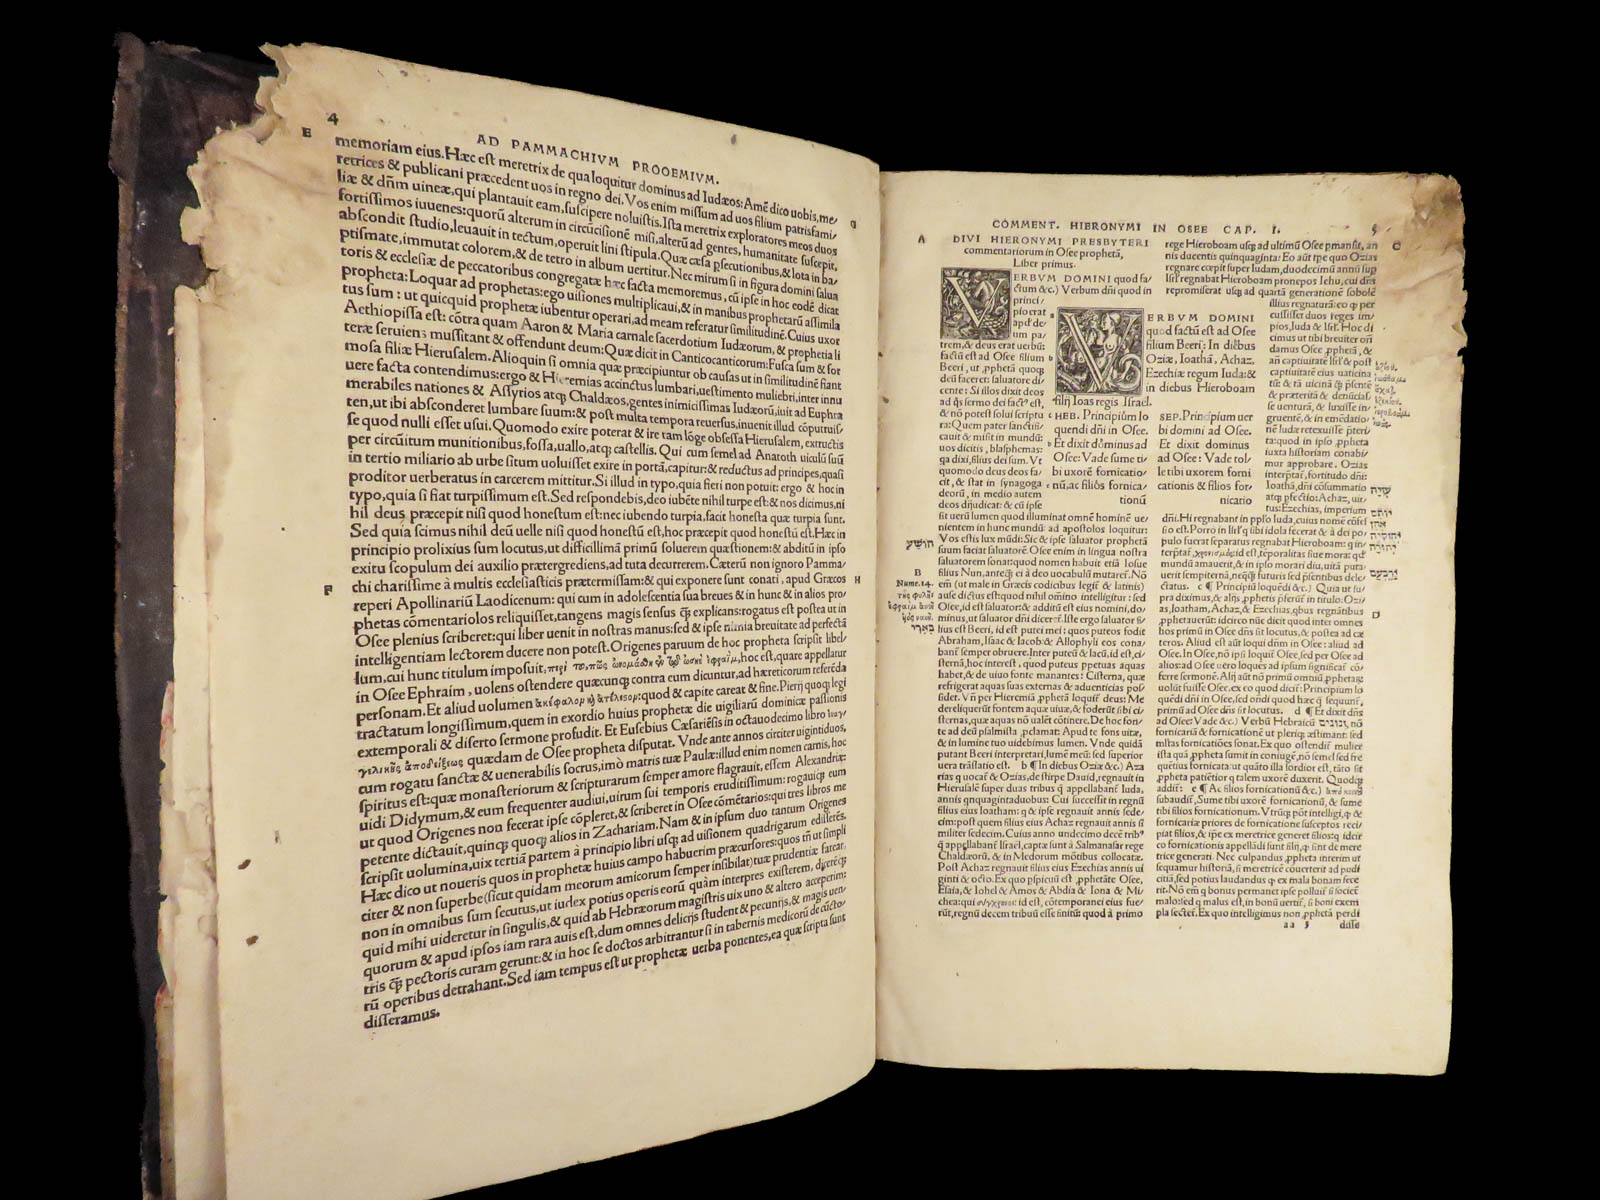 4
AD PAMMACHIVM PROOEMIVM.
E
memoriam eius. Hæc est meretrix de qua loquitur dominus ad Iudæos: Amē dico uobis, me/
retrices & publicani præcedent uos in regno dei. Vos enim missum ad uos filium patrisfami/
liæ & dñm uineæ, qui plantauit eam, suscipere noluistis. Ista meretrix exploratores meos duos
fortissimos iuuenes: quorū alterum in circūcisionē misi, alterū ad gentes, humanitate suscepit,
abscondit studio, leuauit in tectum, operuit lini stipula. Quæ cæsa psecutionibus, & lota in ba/
ptismate, immutat colorem, & de tetro in album uertitur. Nec mirum si in figura domini salua
toris & ecclesiæ de peccatoribus congregatæ hæc facta memoremus, cū ipse in hoc eodē dicat
propheta: Loquar ad prophetas: ego uisiones multiplicaui, & in manibus prophetarū assimila
tus sum: ut quicquid prophetæ iubentur operari, ad meam referatur similitudinē. Cuius uxor
Aethiopissa est: cōtra quam Aaron & Maria carnale sacerdotium Iudæorum, & prophetia li
teræ seruiens mussitant & offendunt deum: Quæ dicit in Canticocanticorum: Fusca sum & for
mosa filiæ Hierusalem. Alioquin si omnia quæ præcipiuntur ob causas ut in similitudinē fiant
uere facta contendimus: ergo & Hieremias accinctus lumbari, uestimento muliebri, inter innu
merabiles nationes & Assyrios atq; Chaldæos, gentes inimicissimas Iudæorū, iuit ad Euphra
ten, ut ibi absconderet lumbare suum: & post multa tempora reuersus, inuenit illud cōputruis/
se quod nulli esset usui. Quomodo exire poterat & ire tam lōge obsessa Hierusalem, extructis
per circūitum munitionibus, fossa, uallo, atq; castellis. Qui cum semel ad Anatoth uiculū suū
in tertio miliario ab urbe situm uoluisset exire in portā, capitur: & reductus ad principes, quasi
proditor uerberatus in carcerem mittitur. Si illud in typo, quia fieri non potuit: ergo & hoc in
typo, quia si fiat turpissimum est. Sed respondebis, deo iubēte nihil turpe est: & nos dicimus, ni
hil deus præcepit nisi quod honestum est: nec iubendo turpia, facit honesta quæ turpia sunt.
Sed quia scimus nihil deū uelle nisi quod honestū est, hoc præcepit quod honestū est. Hæc in
principio prolixius sum locutus, ut difficillimā primū soluerem quæstionem: & abditū in ipso
exitu scopulum dei auxilio prætergrediens, ad tuta decurrerem. Cæterū non ignoro Pamma/
F
chi charissime à multis ecclesiasticis prætermissam: & qui exponere sunt conati, apud Græcos
H
reperi Apollinariū Laodicenum: qui cum in adolescentia sua breues & in hunc & in alios pro/
phetas cōmentariolos reliquisset, tangens magis sensus q̄ explicans: rogatus est postea ut in
Osee plenius scriberet: qui liber uenit in nostras manus: sed & ipse nimia breuitate ad perfectā
intelligentiam lectorem ducere non potest. Origenes paruum de hoc propheta scripsit libel/
lum, cui hunc titulum imposuit, hoc est, quare appellatur
in Osee Ephraim, uolens ostendere quæcunq; contra eum dicuntur, ad hæreticorum referēda
personam. Et aliud uolumen quod & capite careat & fine. Pierij quoq; legi
tractatum longissimum, quem in exordio huius prophetæ die uigiliarū dominicæ passionis
extemporali & diserto sermone profudit. Et Eusebius Cæsariēsis in octauodecimo libro
quædam de Osee propheta disputat. Vnde ante annos circiter uigintiduos,
cum rogatu sanctæ & uenerabilis socrus, imò matris tuæ Paulæ: illud enim nomen carnis, hoc
spiritus est: quæ monasteriorum & scripturarum semper amore flagrauit, essem Alexandriæ:
uidi Didymum, & eum frequenter audiui, uirum sui temporis eruditissimum: rogauiq; eum
ut quod Origenes non fecerat ipse cōpleret, & scriberet in Osee cōmētarios: qui tres libros me
petente dictauit, quinq; quoq; alios in Zachariam. Nam & in ipsum duo tantum Origenes
scripsit uolumina, uix tertiā partem à principio libri usq; ad uisionem quadrigarum edisserēs.
Hæc dico ut noueris quos in prophetæ huius campo habuerim præcursores: quos tñ ut simpli
citer & non superbe (sicut quidam meorum amicorum semper insibilat) tuæ prudentiæ fatear,
non in omnibus sum secutus, ut iudex potius operis eorū quàm interpres existerem, diceréq;
quid mihi uideretur in singulis, & quid ab Hebræorum magistris uix uno & altero acceperim:
quorum & apud ipsos iam rara auis est, dum omnes delicijs student & pecunijs, & magis uen/
tris q̄ pectoris curam gerunt: & in hoc se doctos arbitrantur si in tabernis medicorū de cūcto/
rū operibus detrahant. Sed iam tempus est ut prophetæ uerba ponentes, ea quæ scripta sunt
disseramus.
COMMENT. HIERONYMI IN OSEE CAP. I.
5
A
DIVI HIERONYMI PRESBYTERI
commentariorum in Osee prophetā,
Liber primus.
VERBVM DOMINI quod fa/
ctum &c.) Verbum dñi quod in
princi/
pio erat
apd' de/
um pa/
trem, & deus erat uerbū:
factū est ad Osee filium
Beeri, ut ꝓpheta quoq;
deū faceret: saluatore di/
cente: Si illos dixit deos
ad q̄s sermo dei fact' est,
& nō potest solui scriptu
ra: Quem pater sanctifi/
cauit & misit in mundū:
uos dicitis, blasphemas:
qa dixi, filius dei sum. Vt
quomodo deus deos fa/
cit, & stat in synagoga
deorū, in medio autem
deos dijudicat: & cū ipse
VERBVM DOMINI
quod factū est ad Osee
filium Beeri: In diebus
Oziæ, Ioathā, Achaz.
Ezechiæ regum Iuda: &
in diebus Hieroboam
filij Ioas regis Israël.
HEB. Principiūm lo
quendi dñi in Osee.
Et dixit dominus ad
Osee: Vade sume ti/
bi uxorē fornicatio/
nū, ac filiōs fornica/
tionū
SEP. Principium uer
bi domini ad Osee.
Et dixit dominus
ad Osee: Vade tol/
le tibi uxorem forni
cationis & filios for/
nicatio
sit uerū lumen quod illuminat omnē hominē ue/
nientem in hunc mundū: ad apostolos loquitur:
Vos estis lux mūdi: Sic & ipse saluator prophetā
suum faciat saluatorē. Osee enim in lingua nostra
saluatorem sonat: quod nomen habuit etiā Iosue
filius Nun, anteq̄ ei à deo uocabulū mutaret. Nō
B
Nume. 14.
em (ut male in Græcis codicibus legit & latinis)
ause dictus est: quod nihil omnino intelligitur: sed
Osee, id est saluator: & additū est eius nomini, do/
minus, ut saluator dñi diceret. Iste ergo saluator fi/
lius est Beeri, id est putei mei: quos puteos fodit
Abraham, Isaac & Iacob & Allophyli eos cona/
banť semper obruere. Inter puteū & lacū, id est, ci/
sternā, hoc interest, quod puteus ppetuas aquas
habet, & de uiuo fonte manantes: Cisterna, quæ
refrigerat aquas suas externas & aduenticias pos/
sidet. Vñ per Hieremiā ꝓphetā loquitur deus: Me
dereliquerūt fontem aquæ uiuæ, & foderūt sibi ci/
sternas, quæ aquas nō ualēt cōtinere. De hoc fon/
te ad deū psalmista ꝓclamat: Apud te fons uitæ,
& in lumine tuo uidebimus lumen. Vnde quidā
putant Beeri interpretari, lumē meū: sed superior
uera trāslatio est. b ¶ In diebus Oziæ &c.) Aza
rias q uocať & Ozias, de stirpe Dauid, regnauit in
Hierusalē super duas tribus q̄ appellabanť Iuda,
annis qnquagintaduobus: Cui successit in regnū
filius eius Ioatham: q & ipse regnauit annis sede/
cim: post quem filius eius Achaz regnauit annis si
militer sedecim. Cuius anno undecimo decē trib'
q̄ appellabanť Israël, captæ sunt à Salmanasar rege
Chaldæorū, & in Medorum mōtibus collocatæ.
Post Achaz regnauit filius eius Ezechias annis ui
ginti & octo. Ex quo pspicuū est ꝓphetāte Osee,
Esaia, & Iohel & Amos & Abdia & Iona & Mi/
chea: qui id est, cōtemporanei eius fue/
rūt, regnū decem tribuū esse finitū: quod à primo
C
rege Hieroboam usq; ad ultimū Osee pmansit, an
nis ducentis quinquaginta: Eo aūt tpe quo Ozias
regnare cœpit super Iudam, duodecimū annū sup
Isrľ regnabat Hieroboam pronepos Iehu, cui dñs
repromiserat usq; ad quartā generationē sobolē
illius regnaturā: eo q per
cussisset duos reges im/
pios, Iuda & Isrľ. Hoc di
ximus ut tibi breuiter oñ
damus Osee ꝓphetā, &
añ captiuitatē Isrľ & post
captiuitatē eius uaticina
se & tā uicinā q̄ pſentē
& præteritā & denūcias/
se uenturā, & luxisse in/
gruentē, & in emēdatio/
nē Iudæ retexuisse pteri/
ta: quod in ipso ꝓpheta
iuxta historiam conabi/
mur approbare. Ozias
interptať, fortitudo dñi:
Ioathā, dñi cōsummatio
atq; pfectio: Achaz, uir/
tus: Ezechias, imperium
שמיה
יותם
אחז
dñi. Hi regnabant in ppľo Iuda, cuius nomē cōfes/
sio est. Porro in Isrľ q sibi idola fecerat & à dei po/
pulo fuerat separatus regnabat Hieroboam: q in/
id est, tēporalitas siue mora: qd'
mundū amauerit, & in ipso morari diu, uitā puta/
uerit sempiternā, neq; futuris sed pſentibus dele/
ctatus. c ¶ Principiū loquēdi &c.) Quia ut su/
pra diximus, & alijs ꝓphetis pſuerūt in titulo: Ozi/
D
as, Ioatham, Achaz, & Ezechias, qbus regnātibus
ꝓphetauerūt: idcirco nūc dicit quod inter omnes
hos primū in Osee dñs sit locutus, & postea ad cæ
teros. Aliud est aūt loqui dñm in Osee: aliud ad
Osee. In Osee, nō ipsi loquiť Osee, sed per Osee ad
alios: ad Osee uero loques ad ipsum significať cō/
ferre sermonē. Alij aūt nō primū omniū ꝓphetaꝝ:
uolūt fuisse Osee, ex eo quod diciť: Principium lo
quēdi dñi in Osee, sed ordi quod hæc q̄ sequunť,
primū ad Osee dñs sit locutus. d ¶ Et dixit dñs
ad Osee: Vade &c.) Verbū Hebraicū nō
fornicariā & fornicationē ut pleriq; æstimant: sed
mltas fornicatiōes sonat. Ex quo ostendiť mulier
ista quā ꝓpheta sumit in coniugē, nō semel sed fre
quēter fornicata: ut quāto illa sordior est, tāto sit
ꝓpheta patiētior q talem uxorē duxerit. Quodq;
addiť: e ¶ Ac filios fornicationū &c.)
subaudiť, Sume tibi uxorē fornicationū, & sume
tibi filios fornicationum. Vtrūq; pōt intelligi, q &
de fornicatione priores filios fornicatæ susceptos reci/
piat filios, & ipse ex meretrice generet filios: q idcir
co fornicationis appellādi sunt filij, q sint de mere
trice generati. Nec culpandus ꝓpheta interim ut
sequamur historiā, si meretricē couerterit ad pudi
citiā, sed potius laudandus q ex mala bonam fece
rit. Nō em q bonus permanet ipse polluiť si societ
malo: sed q malus est, in bonū uertiť, si boni exem
pla sectet. Ex quo intelligimus non ꝓphetā perdi
aa 3
disse